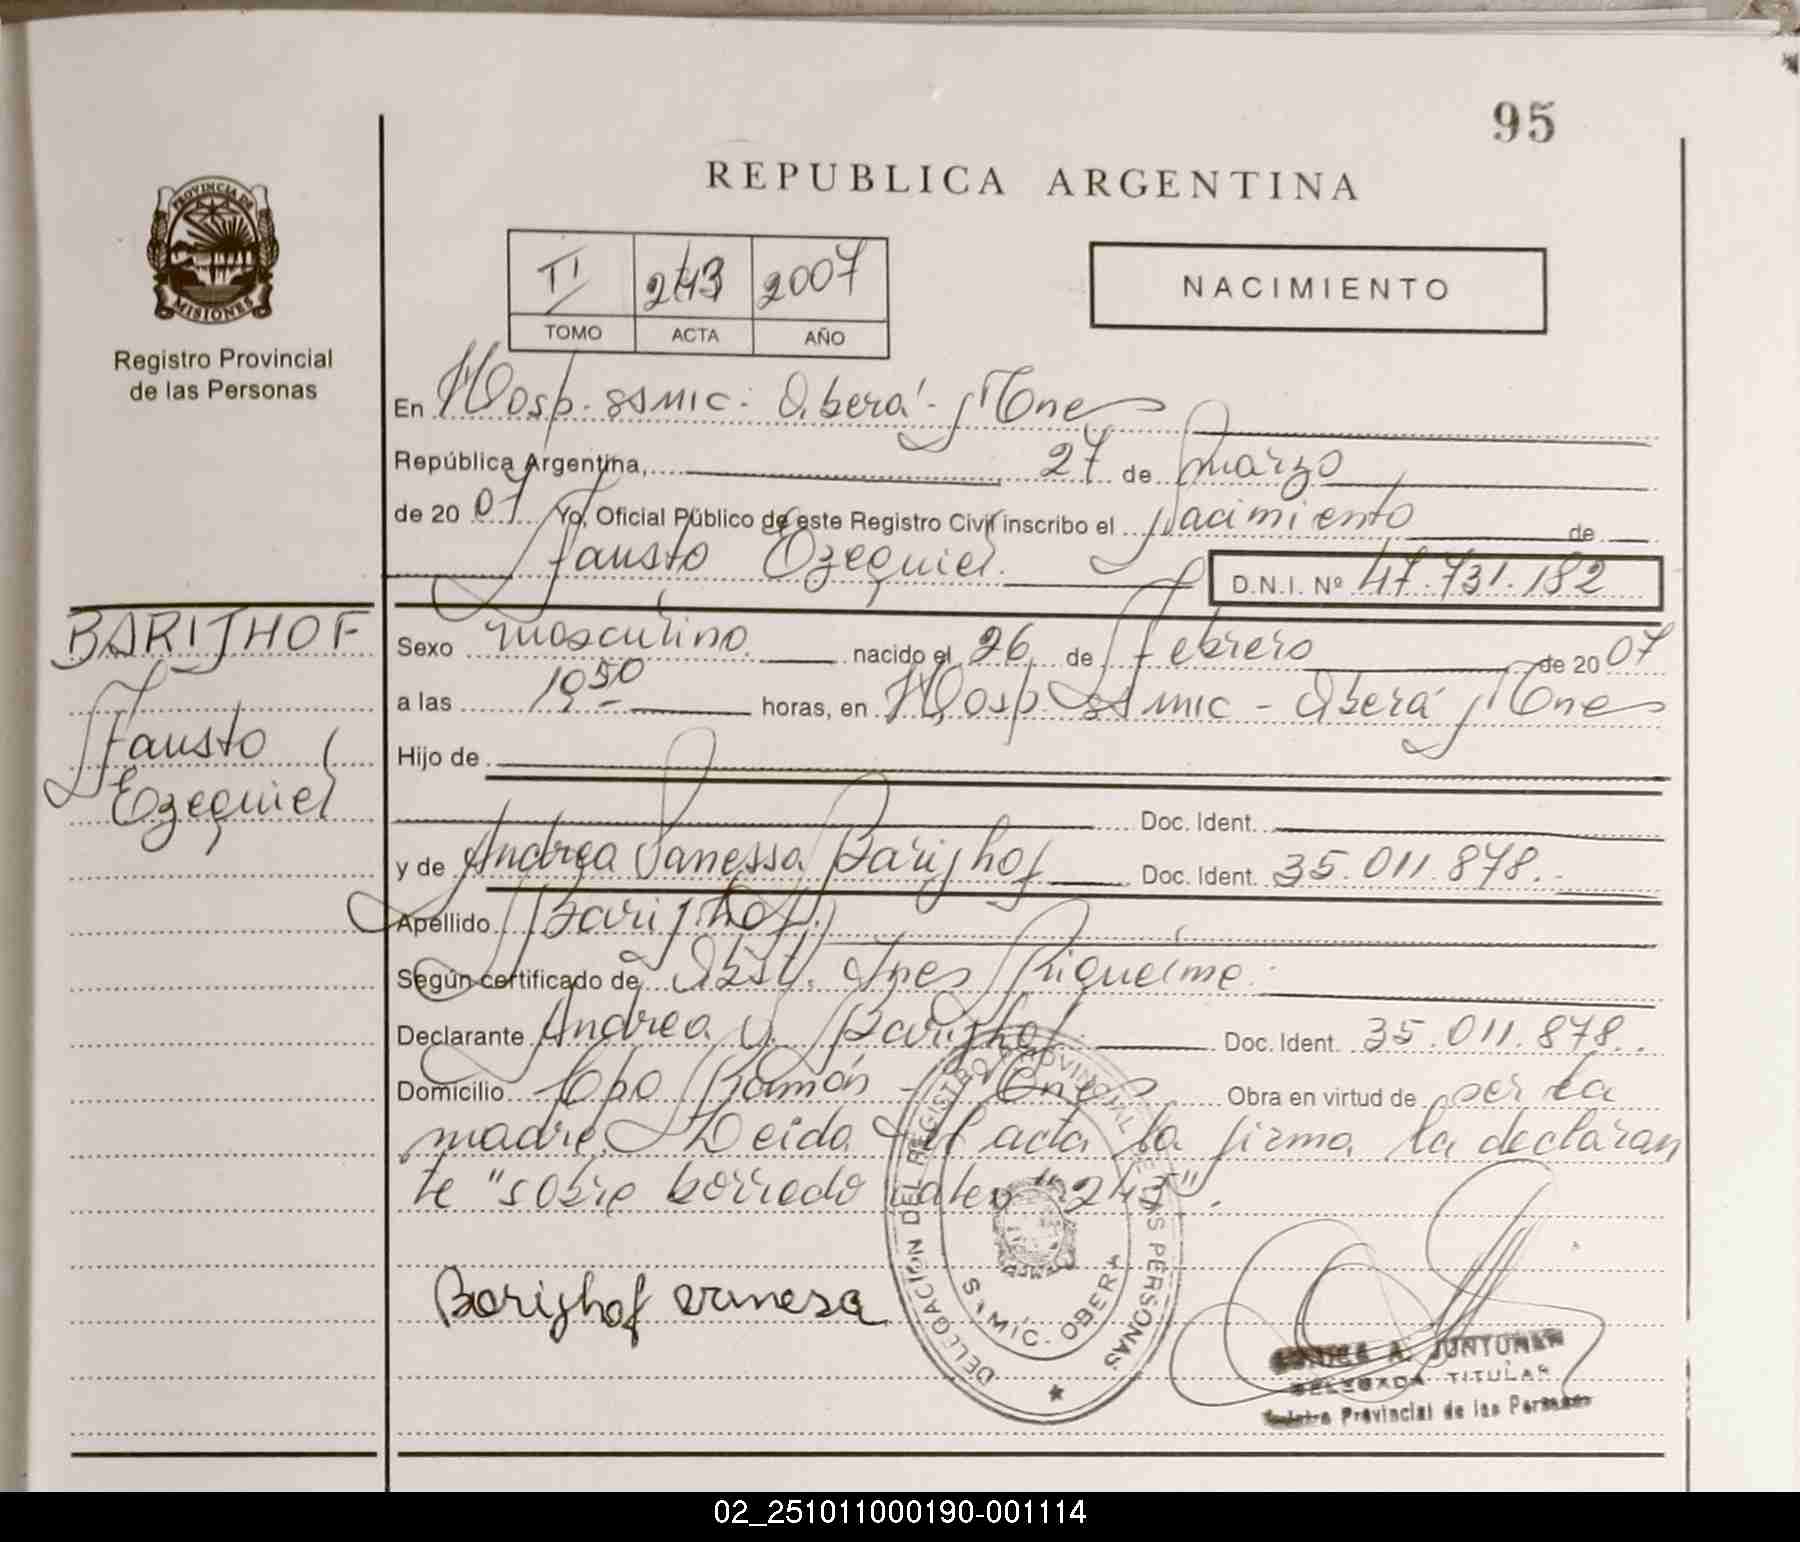 95
REPUBLICA ARGENTINA
PROVINCIA DE
MISIONES
Registro Provincial
de las Personas
TI 243 2007
TOMO ACTA AÑO
NACIMIENTO
En Hosp. SAMIC. Oberá - Mnes
República Argentina, 27 de Marzo
de 20 07 Yo, Oficial Público de este Registro Civil inscribo el Nacimiento de
Fausto Ezequiel. D.N.I. Nº 47.731.182
BARIJHOF
Fausto
Ezequiel
Sexo masculino nacido el 26 de Febrero de 20 07
a las 1950 horas, en Hosp SAMIC - Oberá Mnes
Hijo de
Doc. Ident.
y de Andrea Vanessa Barijhof Doc. Ident. 35.011.878.
Apellido Barijhof.
Según certificado de Obst. Ines Riquelme.
Declarante Andrea V. Barijhof Doc. Ident. 35.011.878.
Domicilio Cpo Ramón - Mnes Obra en virtud de ser la
madre. Leida el acta la firma la declaran
te "sobre borrado vale" "243".
Barijhof vanesa
DELEGACION DEL REGISTRO PROVINCIAL DE LAS PERSONAS
SAMIC. OBERA
A. JUNYONAN
DELEGADA TITULAR
Registro Provincial de las Personas
02_251011000190-001114